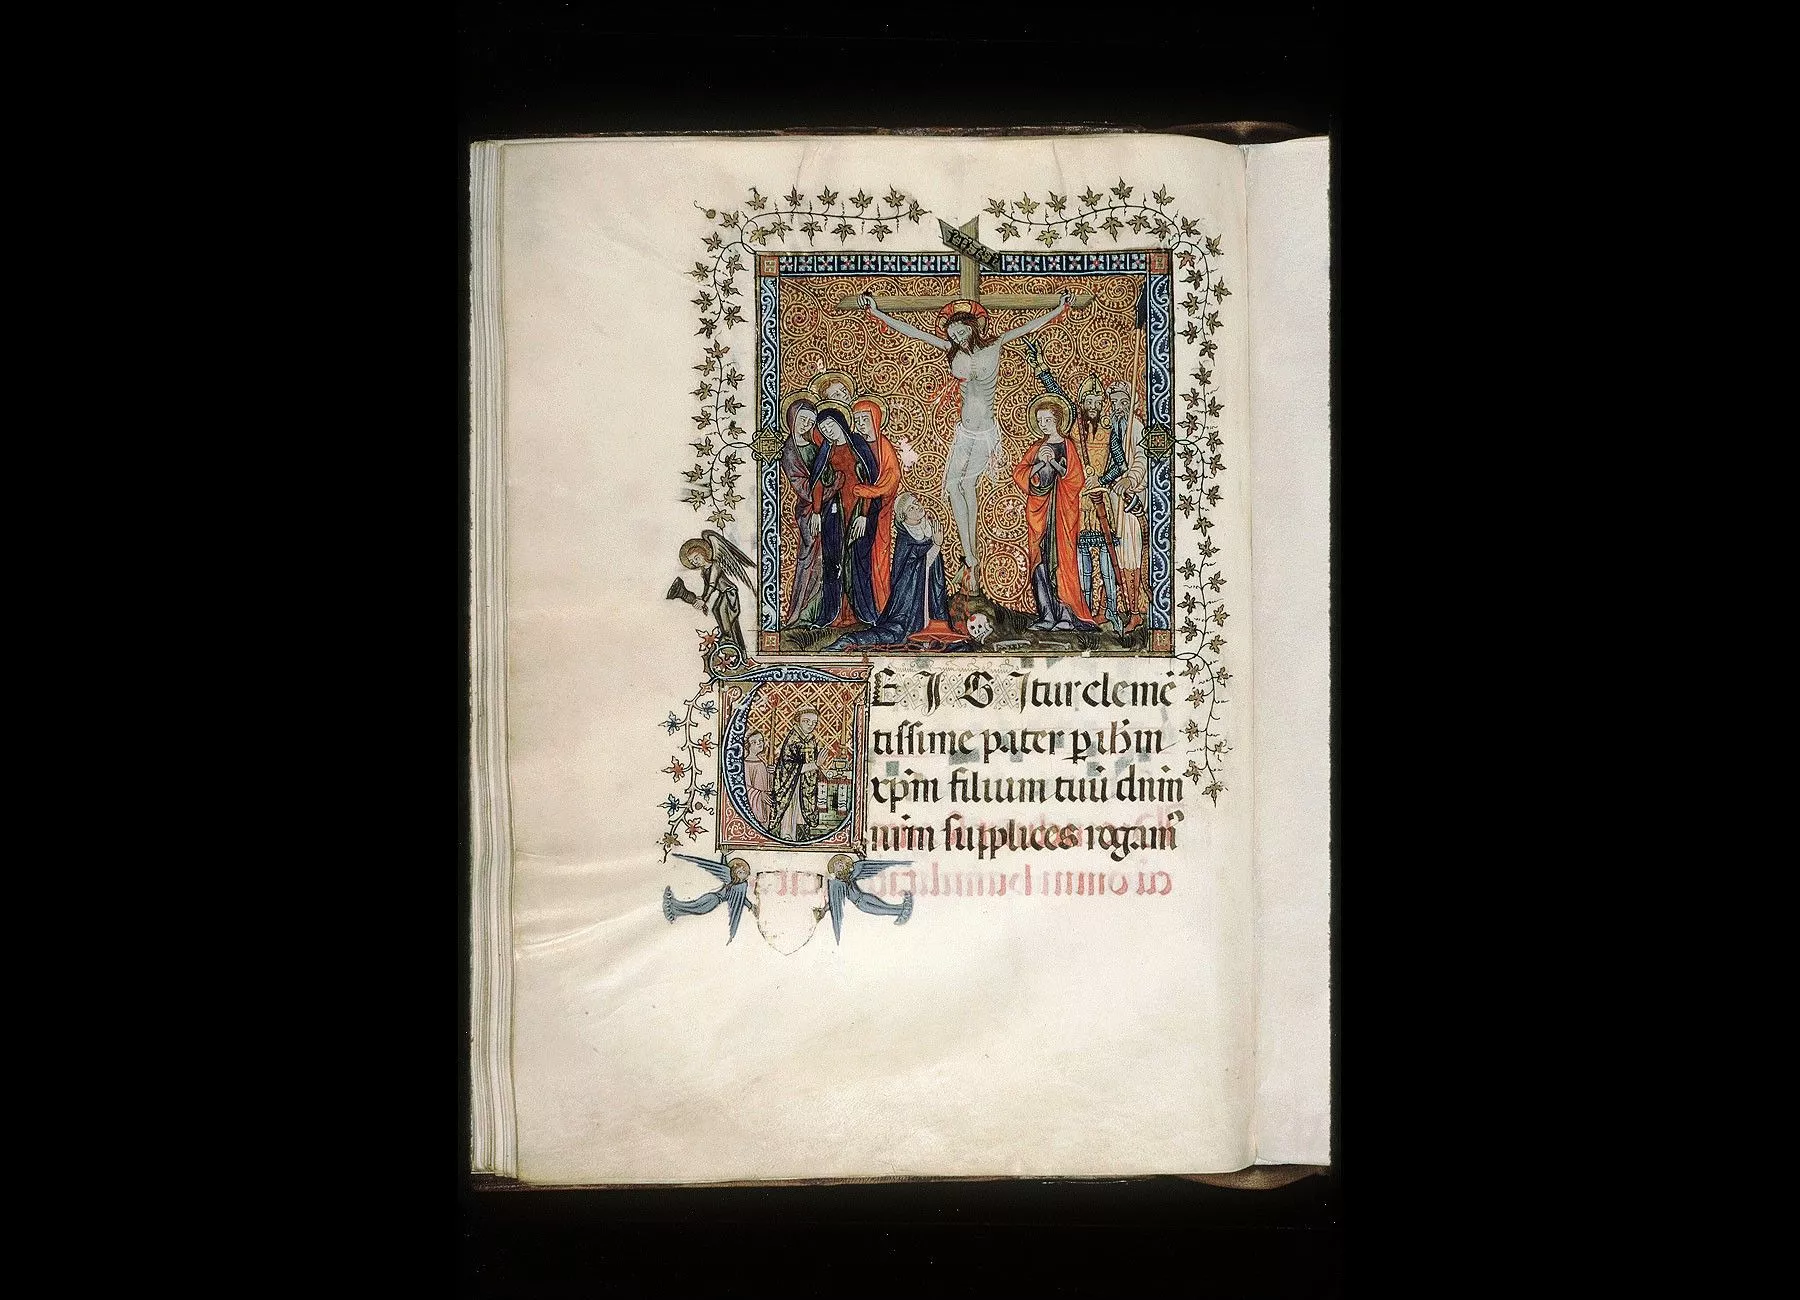 TE IGItur clemē
tissime pater p ihm
xpm filium tuū dnm
nrm supplices rogam⁹